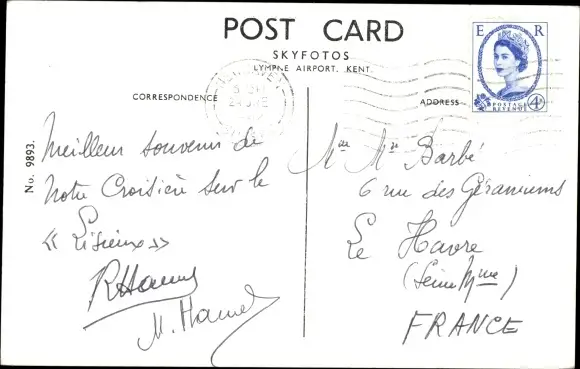 POST CARD
SKYFOTOS
LYMPNE AIRPORT, KENT.
CORRESPONDENCE
ADDRESS
E R
POSTAGE
REVENUE
4D
No. 9893.
Meilleur souvenir de
Notre Croisière sur le
« Lisieux »
M. Hamel
Mme Mr Barbé
6 rue des Géraniums
Le Havre
(Seine Mme)
FRANCE